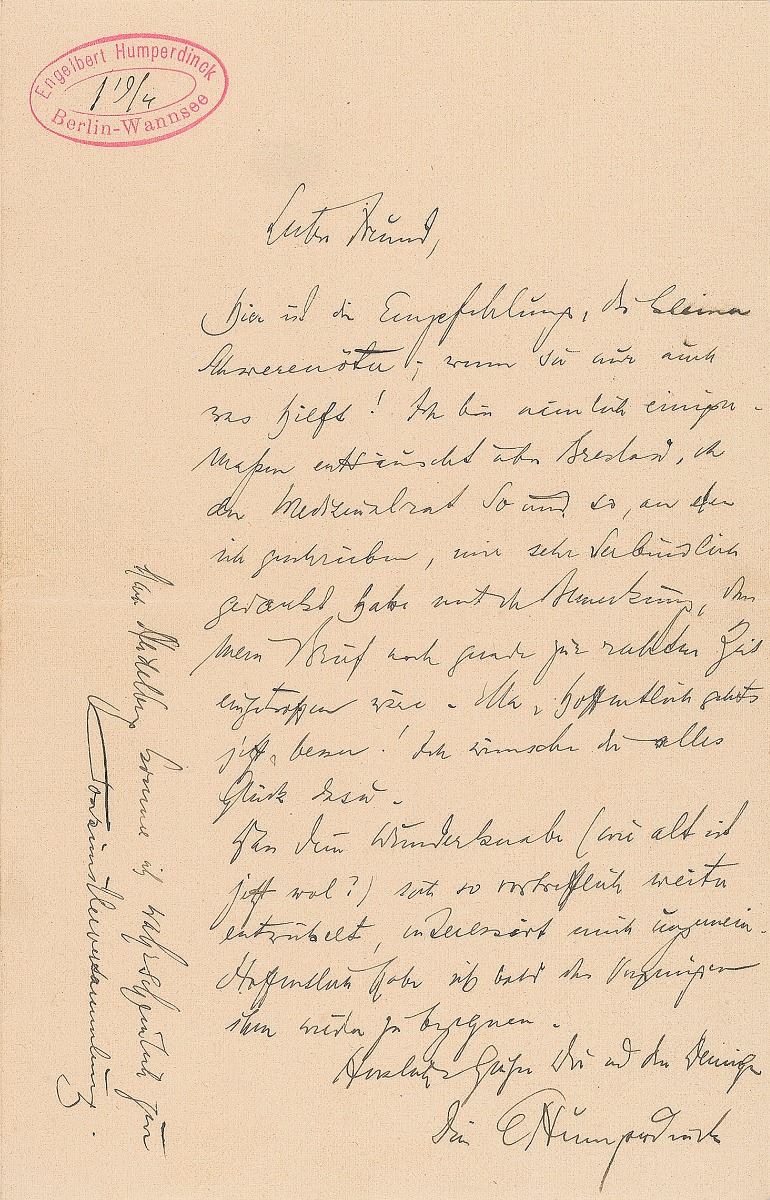 Engelbert Humperdinck
1 19/4
Berlin-Wannsee
Lieber Freund,
Hier ist die Empfehlung, du kleiner
Schwerenöter, wenn sie nur auch
was hilft! Ich bin nämlich einiger-
maßen enttäuscht über Breslau, da
der Medizinalrat So und so, an den
ich geschrieben, mir sehr verbindlich
gedankt habe mit der Bemerkung, dass
mein Brief noch gerade zur rechten Zeit
eingetroffen wäre. Na, hoffentlich gehts
jetzt besser! Ich wünsche dir alles
Glück dazu.
Dass dein Wunderknabe (wie alt ist
jetzt wol?) sich so vortrefflich weiter
entwickelt, interessirt mich ungemein.
Hoffentlich habe ich bald das Vergnügen
ihm wieder zu begegnen.
Herzliche Grüße Dir und den Deinigen
Dein EHumperdinck
Nach Heidelberg komme ich wahrscheinlich zur
Tonkünstlerversammlung.